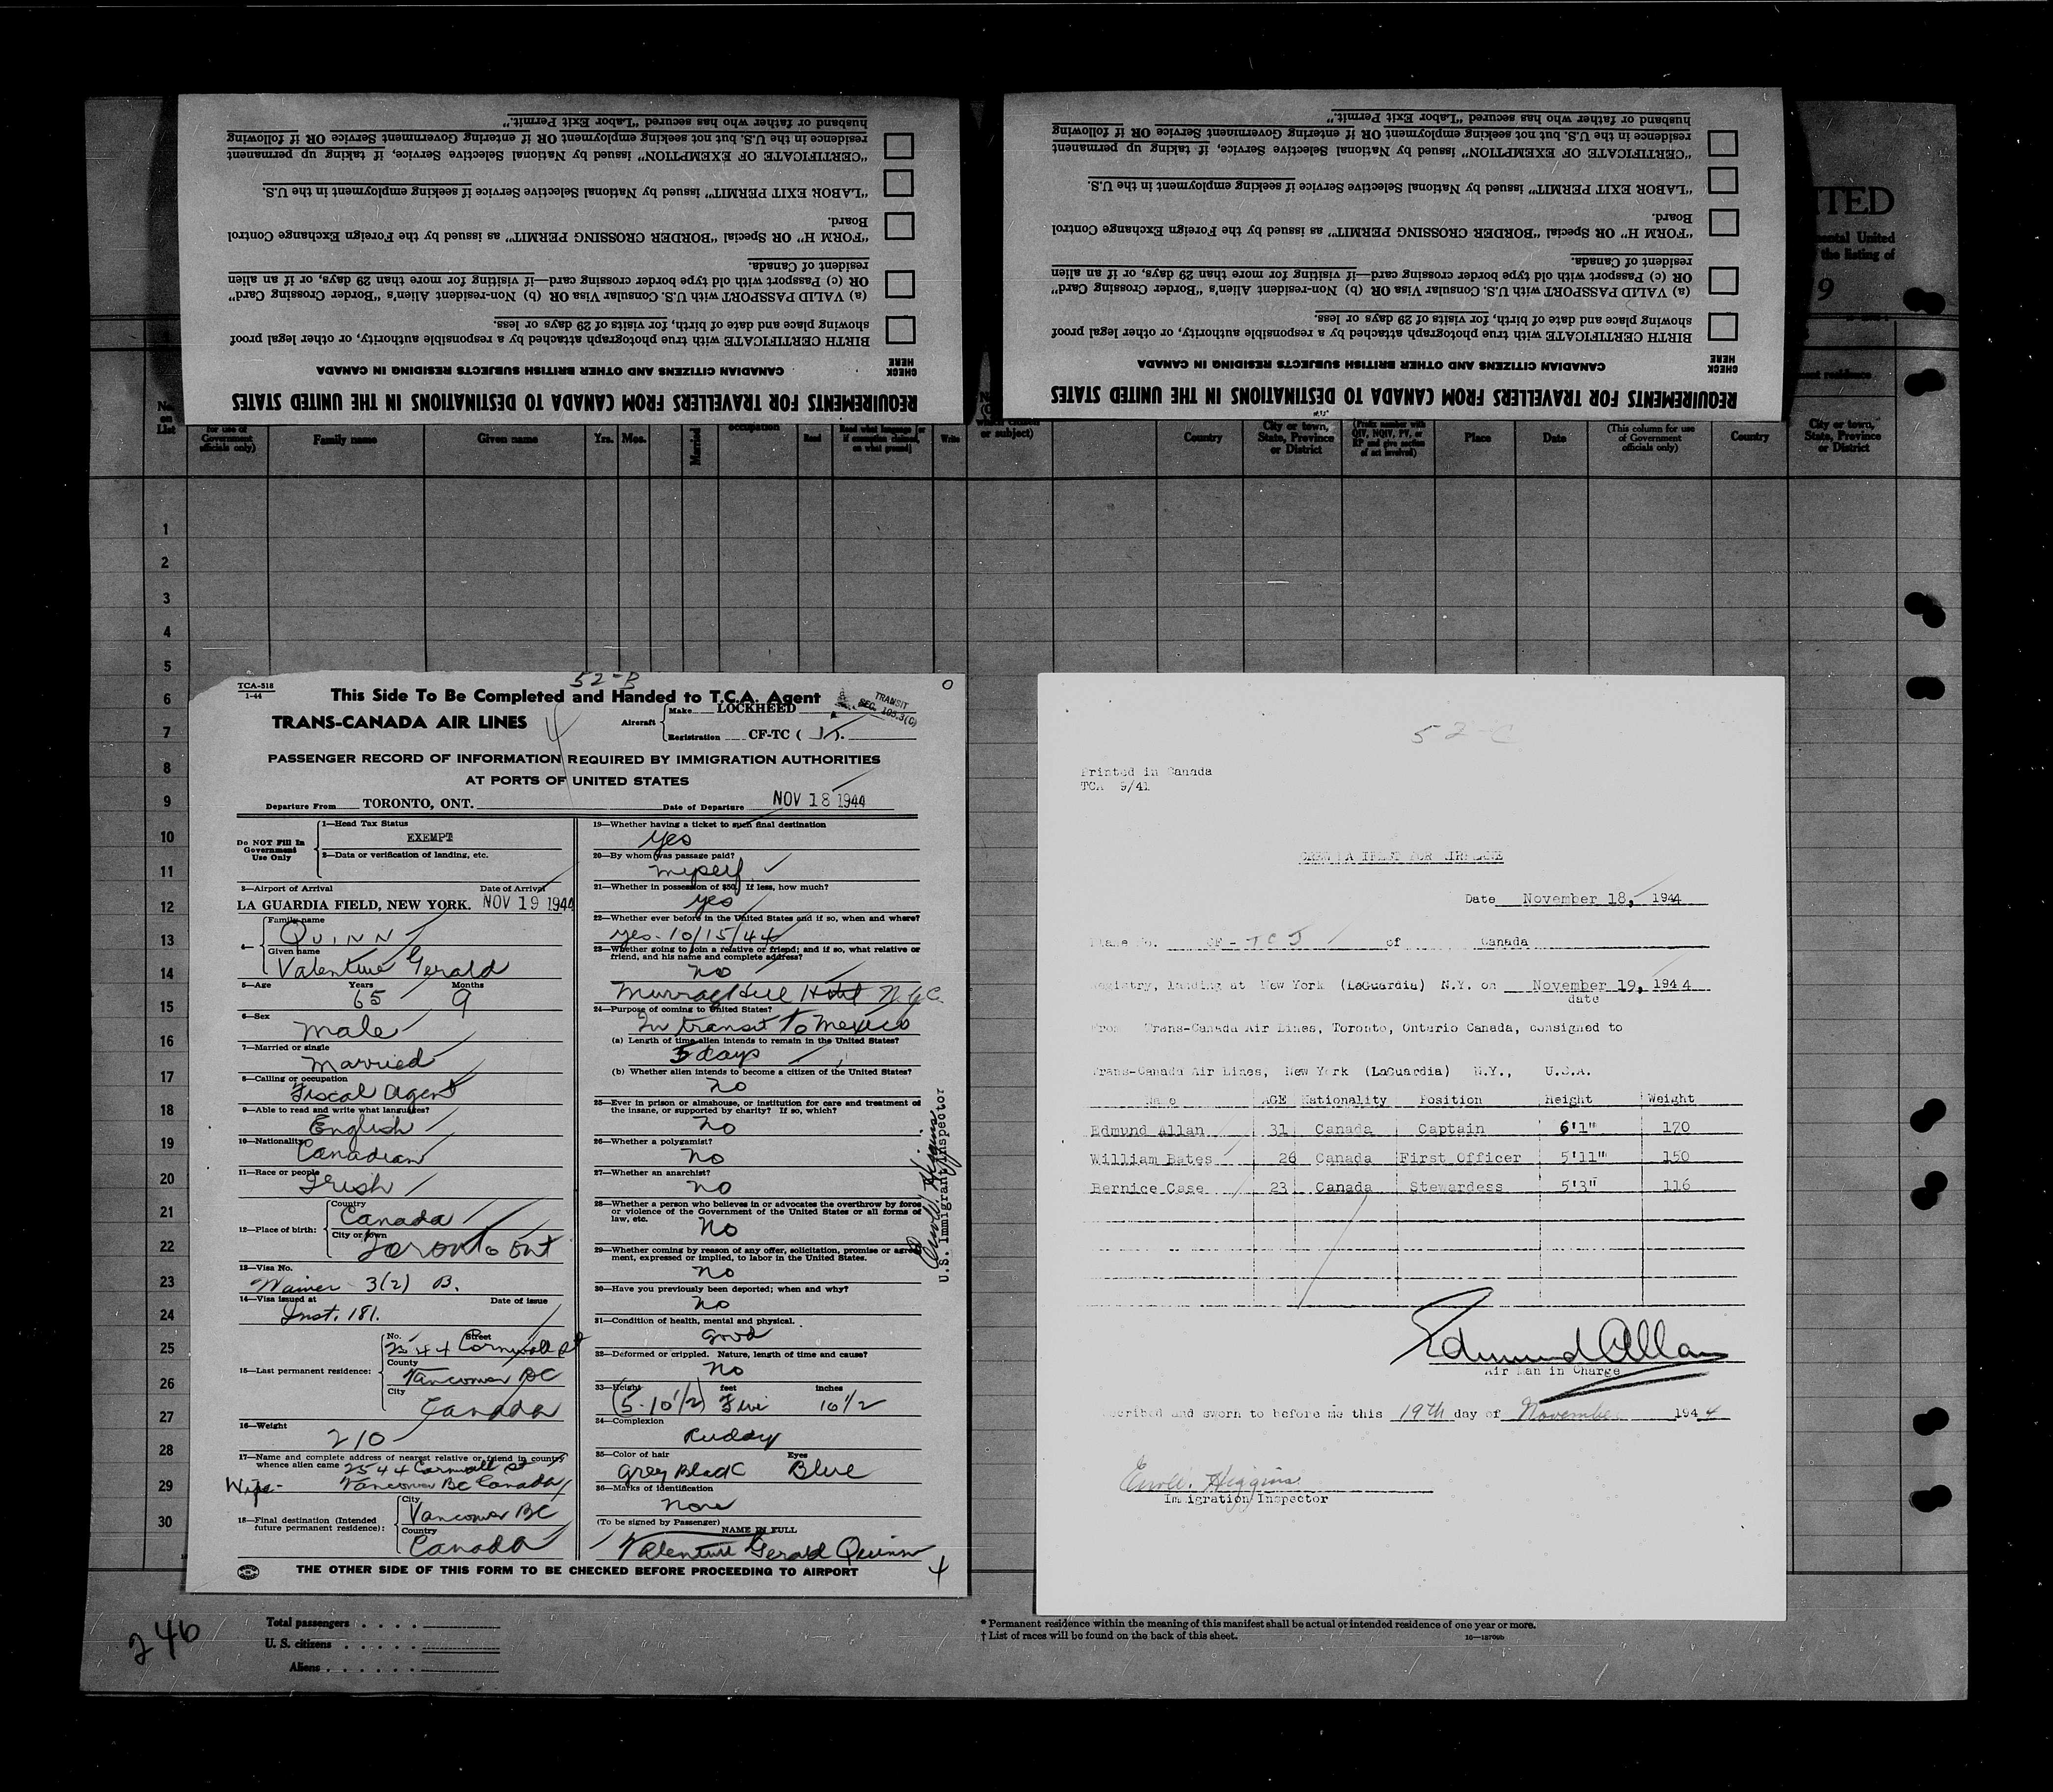 REQUIREMENTS FOR TRAVELLERS FROM CANADA TO DESTINATIONS IN THE UNITED STATES
CHECK HERE
CANADIAN CITIZENS AND OTHER BRITISH SUBJECTS RESIDING IN CANADA
BIRTH CERTIFICATE with true photograph attached by a responsible authority, or other legal proof
showing place and date of birth, for visits of 29 days or less.
(a) VALID PASSPORT with U.S. Consular Visa OR (b) Non-resident Alien's "Border Crossing Card"
OR (c) Passport with old type border crossing card—if visiting for more than 29 days, or if an alien
resident of Canada.
"FORM H" OR Special "BORDER CROSSING PERMIT" as issued by the Foreign Exchange Control
Board.
"LABOR EXIT PERMIT" issued by National Selective Service if seeking employment in the U.S.
"CERTIFICATE OF EXEMPTION" issued by National Selective Service, if taking up permanent
residence in the U.S. but not seeking employment OR if entering Government Service OR if following
husband or father who has secured "Labor Exit Permit."
REQUIREMENTS FOR TRAVELLERS FROM CANADA TO DESTINATIONS IN THE UNITED STATES
CHECK HERE
CANADIAN CITIZENS AND OTHER BRITISH SUBJECTS RESIDING IN CANADA
BIRTH CERTIFICATE with true photograph attached by a responsible authority, or other legal proof
showing place and date of birth, for visits of 29 days or less.
(a) VALID PASSPORT with U.S. Consular Visa OR (b) Non-resident Alien's "Border Crossing Card"
OR (c) Passport with old type border crossing card—if visiting for more than 29 days, or if an alien
resident of Canada.
"FORM H" OR Special "BORDER CROSSING PERMIT" as issued by the Foreign Exchange Control
Board.
"LABOR EXIT PERMIT" issued by National Selective Service if seeking employment in the U.S.
"CERTIFICATE OF EXEMPTION" issued by National Selective Service, if taking up permanent
residence in the U.S. but not seeking employment OR if entering Government Service OR if following
husband or father who has secured "Labor Exit Permit."
ITED
United
the listing of
9
No. on List
for use of Government officials only)
Family name
Given name
Yrs. Mos.
Married
occupation
Read
Read what language [or if exemption claimed, on what ground]
Write
or subject)
Country
City or town, State, Province or District
(Prefix number with QIV, NQIV, PV, or RP and give section of act involved)
Place
Date
(This column for use of Government officials only)
Country
City or town, State, Province or District
1
2
3
4
5
6
7
8
9
10
11
12
13
14
15
16
17
18
19
20
21
22
23
24
25
26
27
28
29
30
TCA-518
1-44
52-B
This Side To Be Completed and Handed to T.C.A. Agent
TRANS-CANADA AIR LINES
Aircraft
Make LOCKHEED
Registration CF-TC ( J).
TRANSIT
SEC. 103.3(C)
PASSENGER RECORD OF INFORMATION REQUIRED BY IMMIGRATION AUTHORITIES
AT PORTS OF UNITED STATES
Departure From TORONTO, ONT.
Date of Departure NOV 18 1944
Do NOT Fill In Government Use Only
1—Head Tax Status
EXEMPT
2—Data or verification of landing, etc.
3—Airport of Arrival Date of Arrival
LA GUARDIA FIELD, NEW YORK. NOV 19 1944
4—
Family name
QUINN
Given name
Valentine Gerald
5—Age Years Months
65 9
6—Sex
Male
7—Married or single
Married
8—Calling or occupation
Fiscal Agent
9—Able to read and write what languages?
English
10—Nationality
Canadian
11—Race or people
Irish
12—Place of birth:
Country
Canada
City or town
Toronto Ont
13—Visa No.
Waiver 3(2) B.
14—Visa issued at Date of issue
Inst. 181.
15—Last permanent residence:
No. Street
2544 Cornwall St
County
Vancouver BC
City
Canada
16—Weight
210
17—Name and complete address of nearest relative or friend in country
whence alien came
2544 Cornwall St
Wife- Vancouver BC Canada
18—Final destination (Intended future permanent residence):
City
Vancouver BC
Country
Canada
19—Whether having a ticket to such final destination
Yes
20—By whom was passage paid?
myself
21—Whether in possession of $50, If less, how much?
yes
22—Whether ever before in the United States and if so, when and where?
yes- 10/15/44
23—Whether going to join a relative or friend; and if so, what relative or
friend, and his name and complete address?
No
Murray Hill Hotel N.Y.C.
24—Purpose of coming to United States?
In transit to Mexico
(a) Length of time alien intends to remain in the United States?
5 days
(b) Whether alien intends to become a citizen of the United States?
No
25—Ever in prison or almshouse, or institution for care and treatment of
the insane, or supported by charity? If so, which?
No
26—Whether a polygamist?
No
27—Whether an anarchist?
No
28—Whether a person who believes in or advocates the overthrow by force
or violence of the Government of the United States or all forms of
law, etc.
No
29—Whether coming by reason of any offer, solicitation, promise or agreement,
expressed or implied, to labor in the United States.
No
30—Have you previously been deported; when and why?
No
31—Condition of health, mental and physical.
Good
32—Deformed or crippled. Nature, length of time and cause?
No
33—Height feet inches
(5-10 1/2) Five 10 1/2
34—Complexion
Ruddy
35—Color of hair Eyes
Grey Black Blue
36—Marks of identification
None
(To be signed by Passenger)
NAME IN FULL
Valentine Gerald Quinn
THE OTHER SIDE OF THIS FORM TO BE CHECKED BEFORE PROCEEDING TO AIRPORT
Higgins
U.S. Immigrant Inspector
52-C
Printed in Canada
TCA 9/41
CREW MANIFEST FOR AIRPLANE
Date November 18, 1944
Plane No. CF - TCJ of Canada
Registry, landing at New York (LaGuardia) N.Y. on November 19, 1944
date
From Trans-Canada Air Lines, Toronto, Ontario Canada, consigned to
Trans-Canada Air Lines, New York (LaGuardia) N.Y., U.S.A.
Name AGE Nationality Position Height Weight
Edmund Allan 31 Canada Captain 6'1" 170
William Bates 26 Canada First Officer 5'11" 150
Bernice Case 23 Canada Stewardess 5'3" 116
Edmund Allan
Air Man in Charge
scribed and sworn to before me this 19th day of November 1944
Higgins
Immigration Inspector
246
Total passengers
U. S. citizens
Aliens
* Permanent residence within the meaning of this manifest shall be actual or intended residence of one year or more.
† List of races will be found on the back of this sheet.